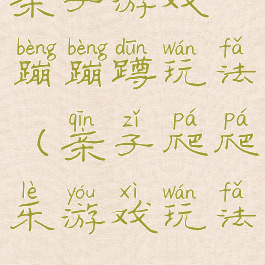 亲子游戏
bèng bèng dūn wán fǎ
蹦蹦蹲玩法
qīn zǐ pá pá
（亲子爬爬
lè yóu xì wán fǎ
乐游戏玩法